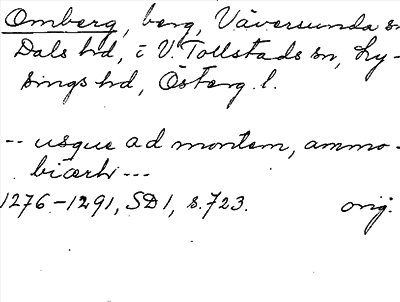 Omberg, berg, Väversunda sn
Dals hd, i V. Tollstads sn, Ly-
sings hd, Österg. l.
-- usque ad montem, ammo-
biærh ---
1276-1291, SD 1, s. 723. orig.